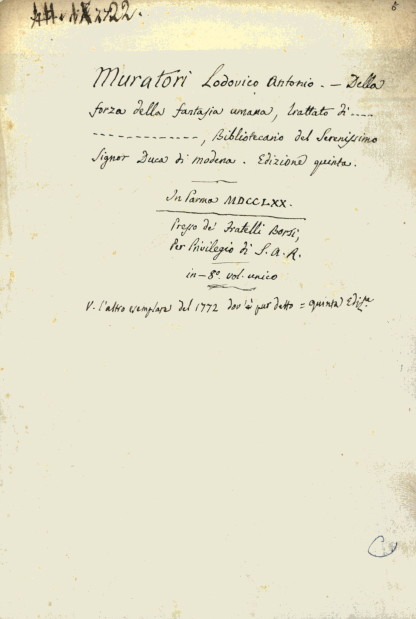 6
Muratori Lodovico Antonio. — Della
forza della fantasia umana, trattato di .....
- - - - - - - - - - - - - -, Bibliotecario del Serenissimo
Signor Duca di Modena. Edizione quinta.
In Parma MDCCLXX.
Presso de' Fratelli Borsi,
Per Privilegio di S. A. R.
in-8º. vol. unico
V. l'altro esemplare del 1772 dov'è pur detto = quinta Ediz.e